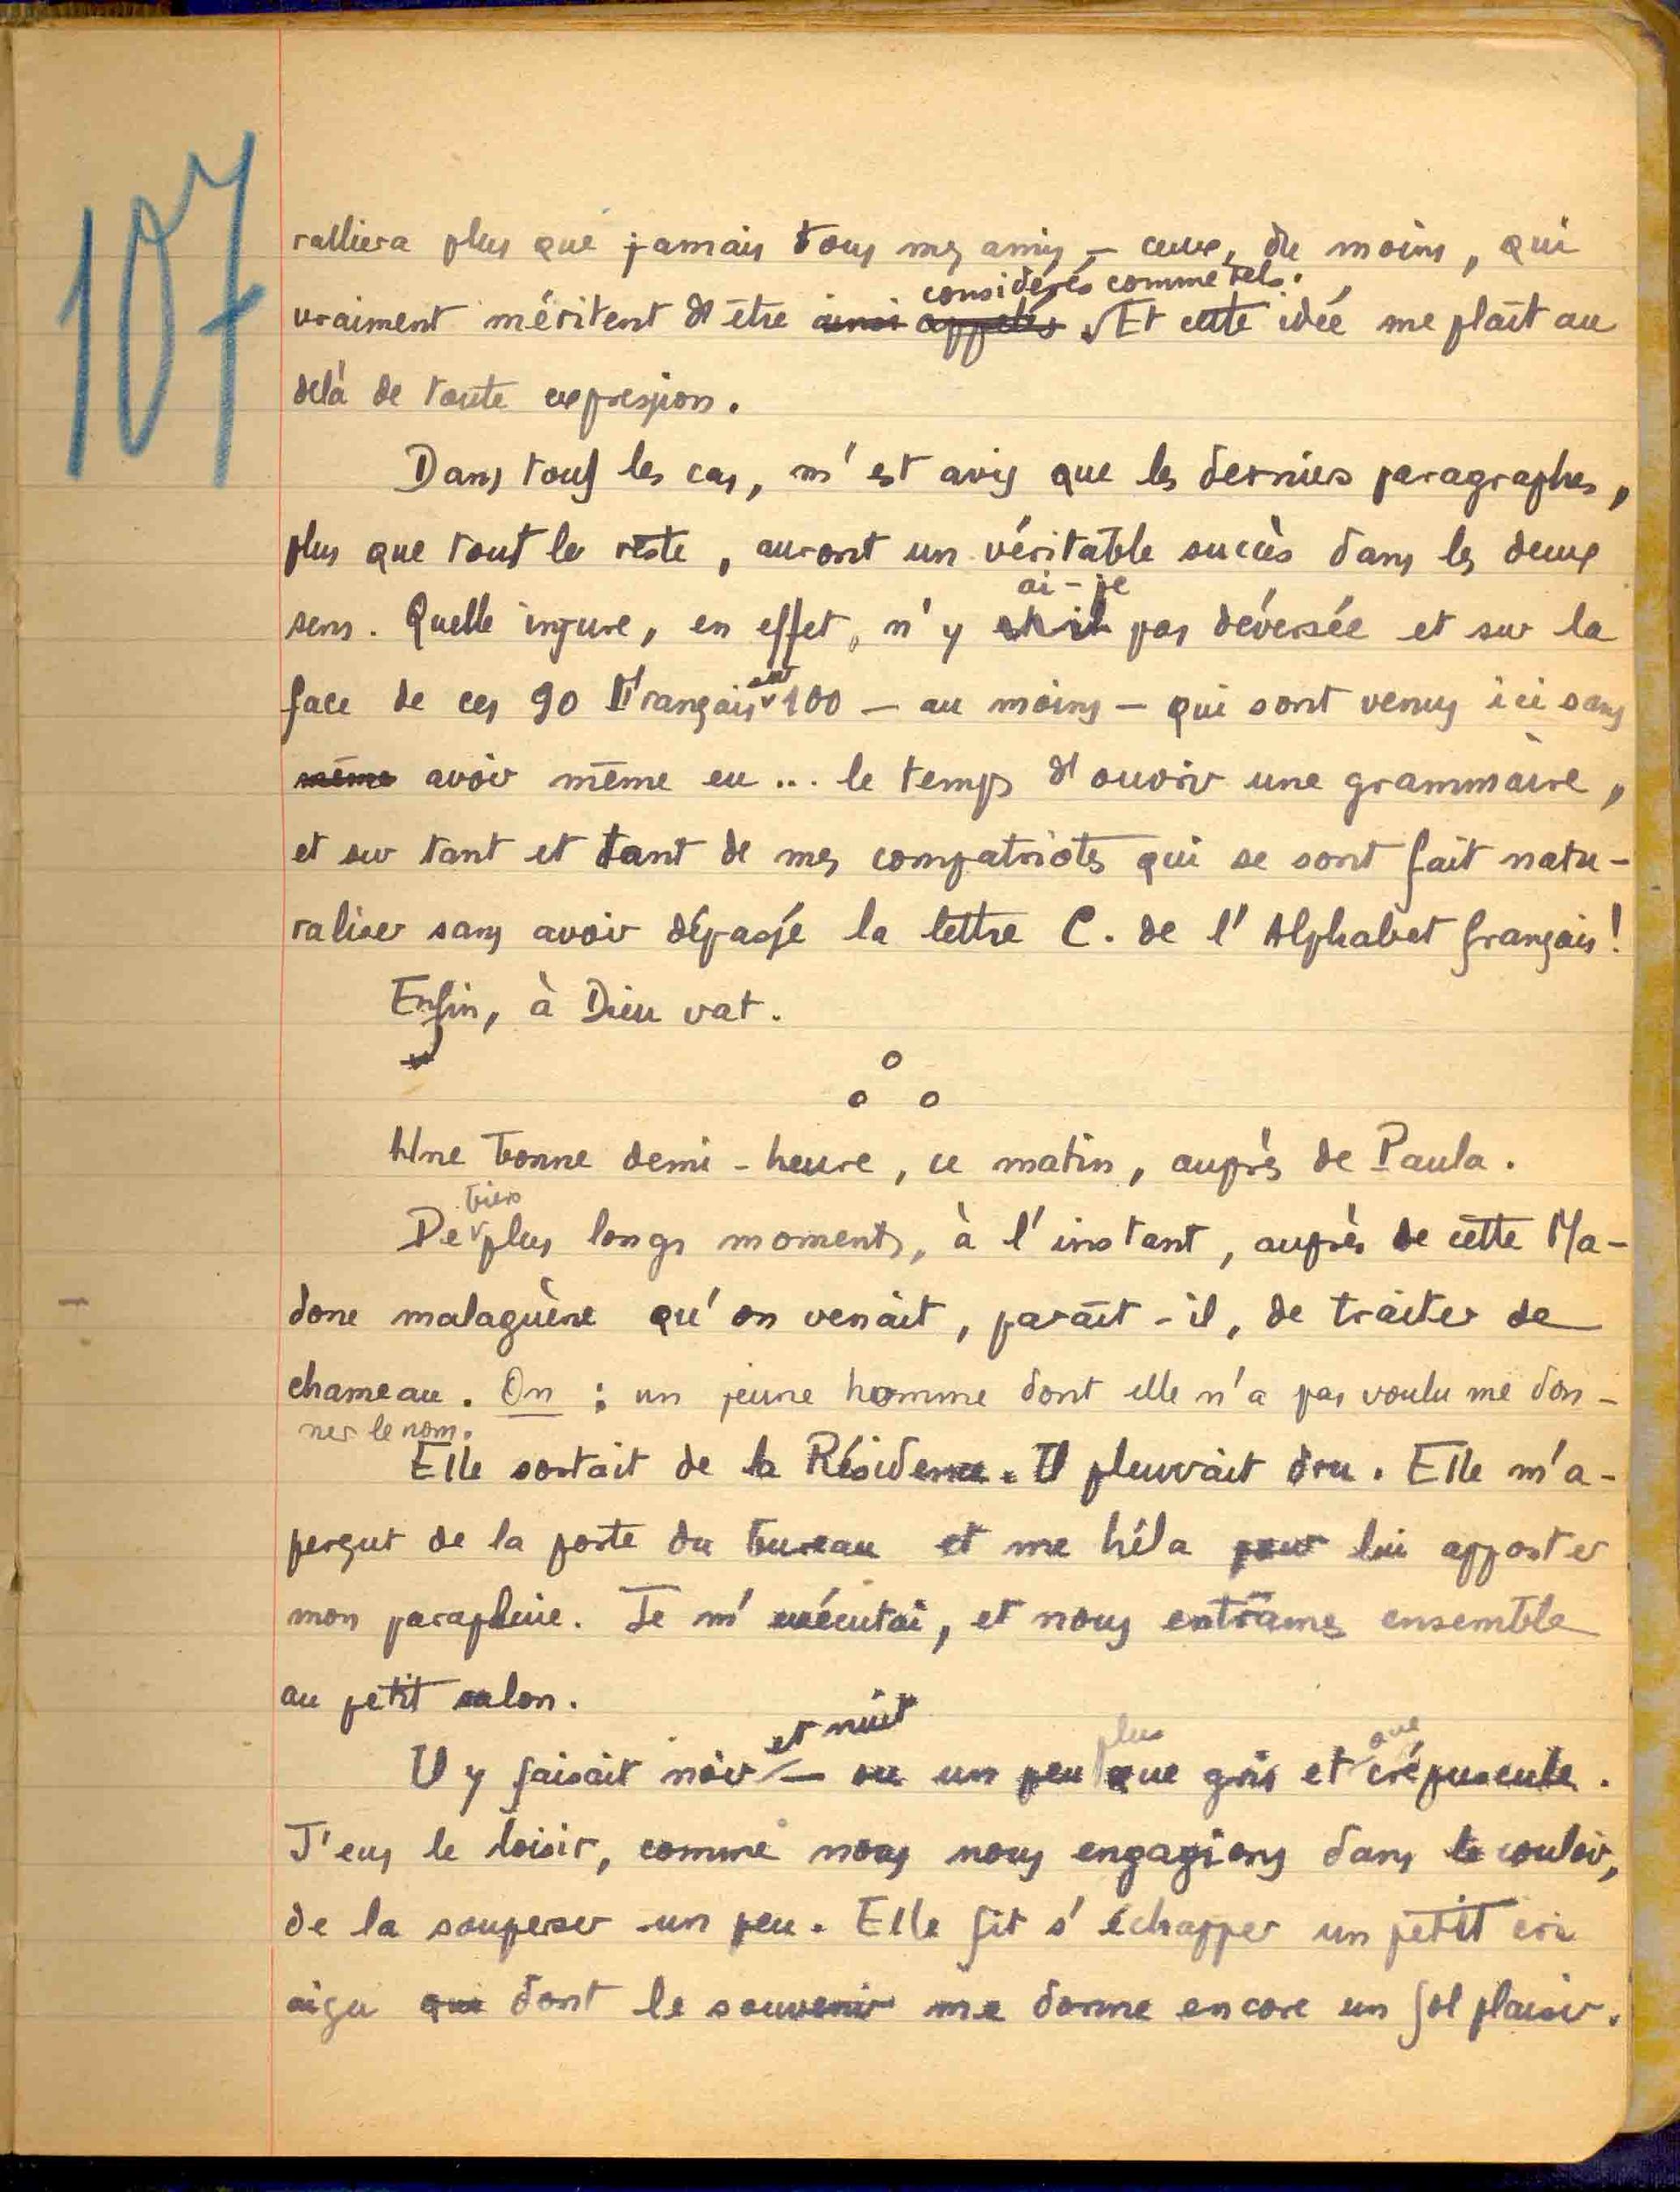 107
ralliera plus que jamais tous mes amis, – ceux, du moins, qui
considérés comme tels.
vraiment méritent d'être ainsi appelés Et cette idée me plaît au
delà de toute expression.
Dans tous les cas, m'est avis que les derniers paragraphes,
plus que tout le reste, auront un véritable succès dans les deux
ai-je
sens. Quelle injure, en effet, n'y pas déversée et sur la
face de ces 90 Français sur 100 – au moins – qui sont venus ici sans
même avoir même eu ... le temps d'ouvrir une grammaire,
et sur tant et tant de mes compatriotes qui se sont fait natu-
raliser sans avoir dépassé la lettre C. de l'Alphabet français!
Enfin, à Dieu vat.
Une bonne demi-heure, ce matin, auprès de Paula.
bien
De plus longs moments, à l'instant, auprès de cette Ma-
done malaguène qu'on venait, paraît-il, de traiter de
chameau. On : un jeune homme dont elle n'a pas voulu me don-
ner le nom.
Elle sortait de la Résidence. Il pleuvait dru. Elle m'a-
perçut de la porte du bureau et me héla pour lui apporter
mon parapluie. Je m'exécutai, et nous entrâmes ensemble
au petit salon.
et nuit plus que
Il y faisait noir – ou un peu que gris et crépuscule.
J'eus le loisir, comme nous nous engagions dans le couloir,
de la soupeser un peu. Elle fit s'échapper un petit cri
aigu que dont le souvenir me donne encore un fol plaisir.